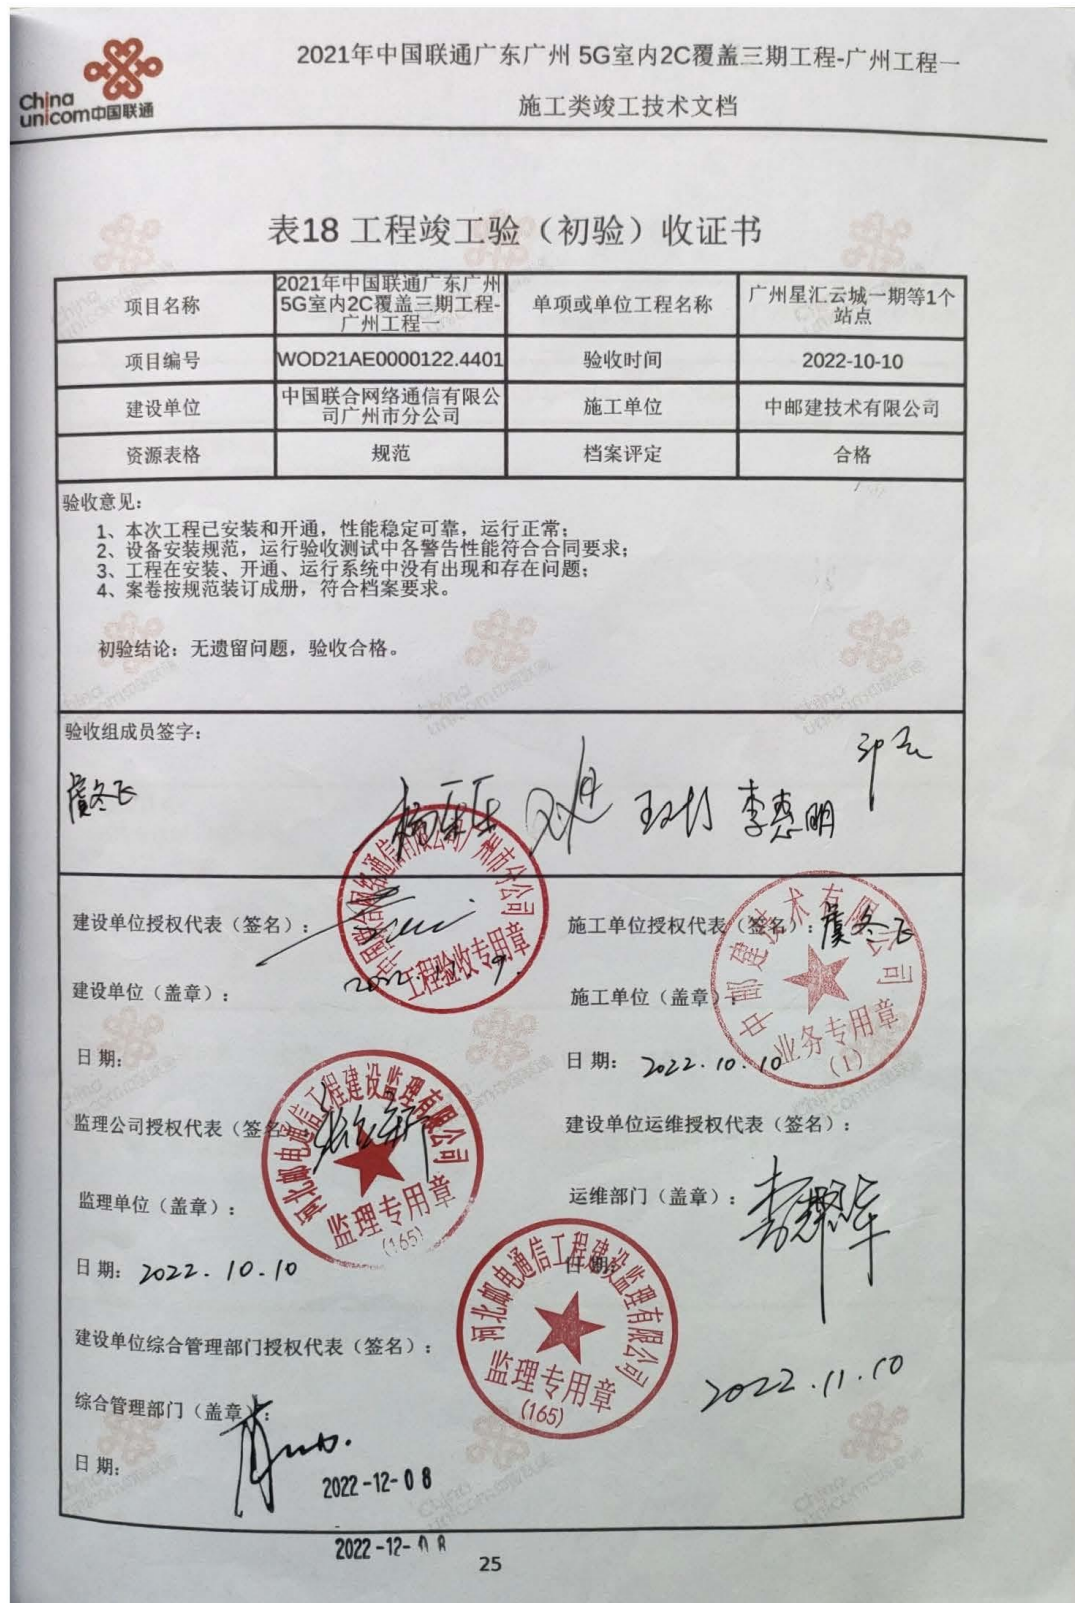 China
unicom中国联通
2021年中国联通广东广州 5G室内2C覆盖三期工程-广州工程一
施工类竣工技术文档
表18 工程竣工验（初验）收证书
项目名称
2021年中国联通广东广州
5G室内2C覆盖三期工程-
广州工程一
单项或单位工程名称
广州星汇云城一期等1个
站点
项目编号
WOD21AE0000122.4401
验收时间
2022-10-10
建设单位
中国联合网络通信有限公
司广州市分公司
施工单位
中邮建技术有限公司
资源表格
规范
档案评定
合格
验收意见：
1、本次工程已安装和开通，性能稳定可靠，运行正常；
2、设备安装规范，运行验收测试中各警告性能符合合同要求；
3、工程在安装、开通、运行系统中没有出现和存在问题；
4、案卷按规范装订成册，符合档案要求。
初验结论：无遗留问题，验收合格。
验收组成员签字：
虞冬飞
李惠明
建设单位授权代表（签名）：
中国联合网络通信有限公司广州市分公司
工程验收专用章
施工单位授权代表（签名）：虞冬飞
中邮建技术有限公司
业务专用章
（1）
建设单位（盖章）：
施工单位（盖章）：
日 期：
日 期： 2022.10.10
监理公司授权代表（签名
河北邮电通信工程建设监理有限公司
监理专用章
(165)
建设单位运维授权代表（签名）：
监理单位（盖章）：
运维部门（盖章）：
日 期： 2022.10.10
日 期：
河北邮电通信工程建设监理有限公司
监理专用章
(165)
2022.11.10
建设单位综合管理部门授权代表（签名）：
综合管理部门（盖章）：
日 期：
2022-12-08
2022-12-08
25